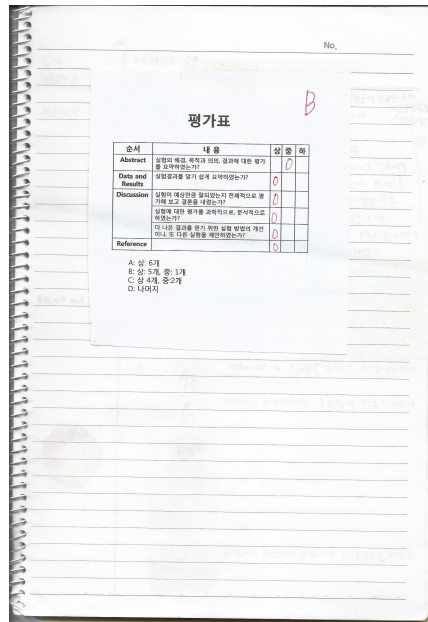 No.
B
평가표
순서 내 용 상 중 하
Abstract 실험의 배경, 목적과 의의, 결과에 대한 평가
를 요약하였는가? O
Data and
Results 실험결과를 알기 쉽게 요약하였는가? O
Discussion 실험이 예상만큼 잘되었는지 전체적으로 평
가해 보고 결론을 내렸는가? O
실험에 대한 평가를 과학적으로, 분석적으로
하였는가? O
더 나은 결과를 얻기 위한 실험 방법의 개선
이나, 또 다른 실험을 제안하였는가? O
Reference O
A: 상: 6개
B: 상: 5개, 중: 1개
C: 상 4개, 중:2개
D: 나머지